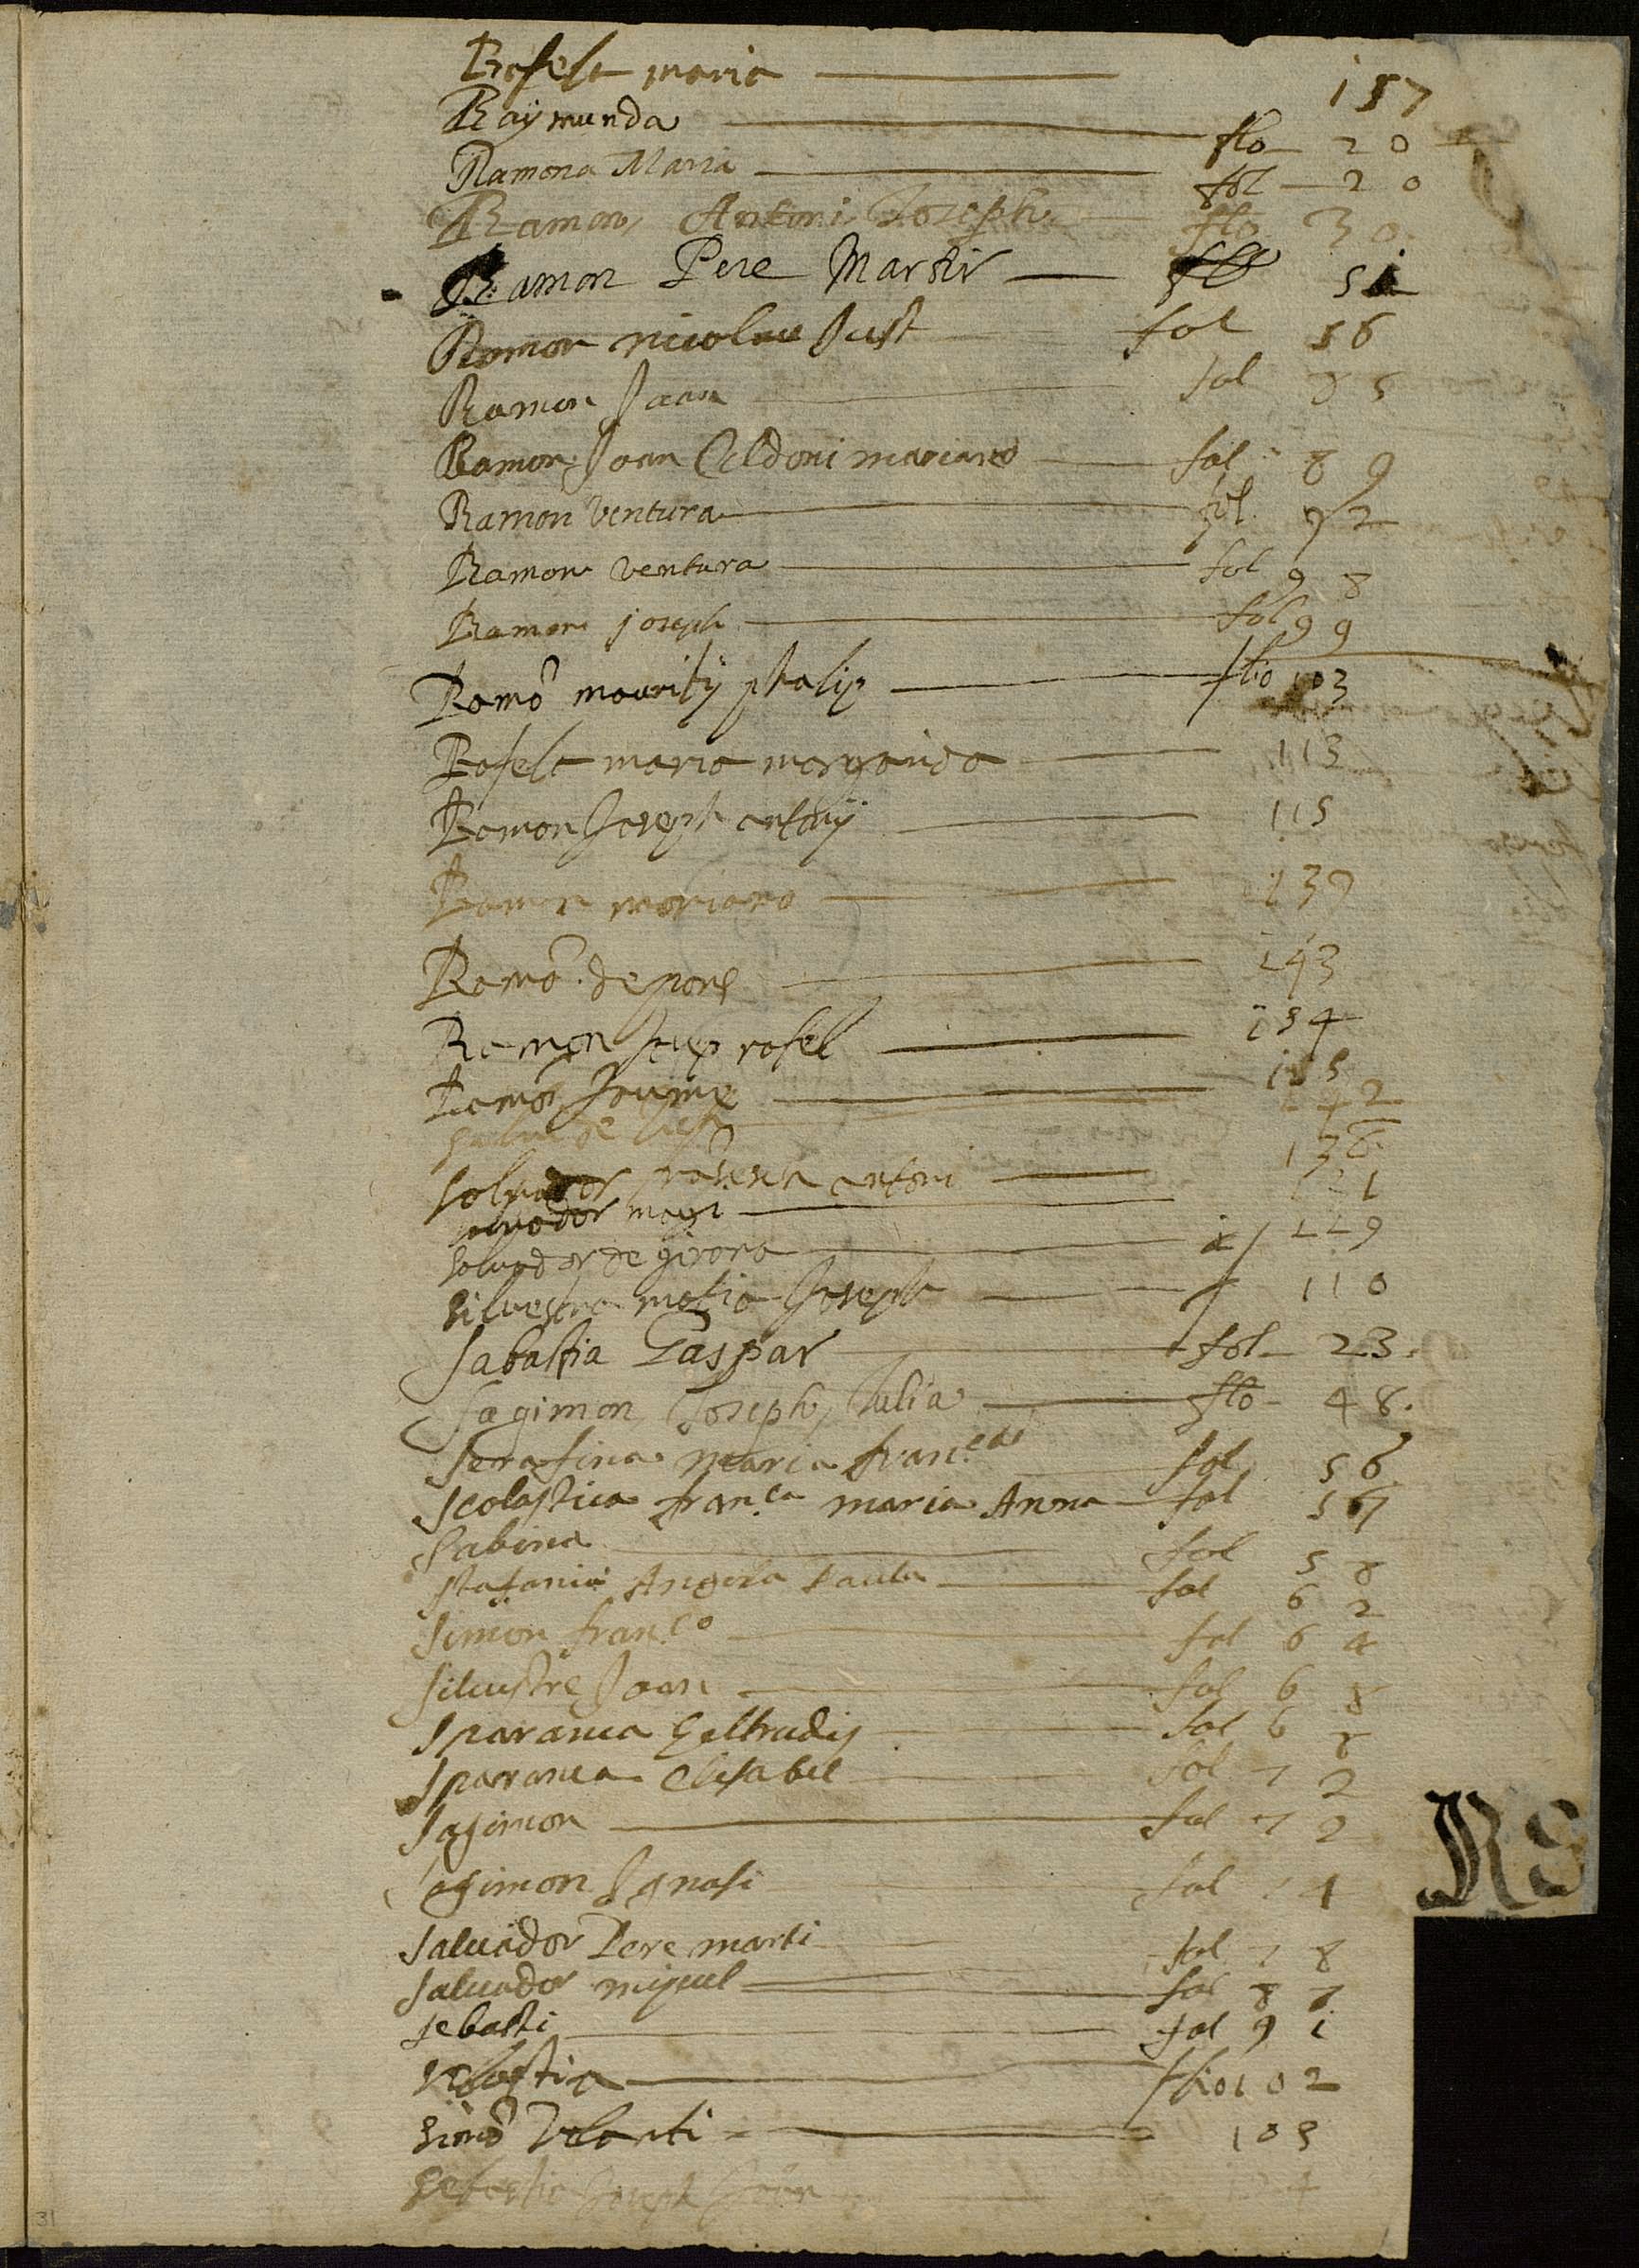 Rafela maria 157
Raymunda flo 20
Ramona Maria fol 20
Ramon Antoni Joseph flo 30
Ramon Pere Martir 51
Ramon nicolau Just fol 56
Ramon Joan fol 85
Ramon Joan Celdoni mariano fol 89
Ramon Ventura fol 92
Ramon ventura fol 98
Ramon joseph fol 99
Ramō mauritij phalip flio 103
Rafela maria margarida 113
Ramon Joseph antonij 115
Ramon mariano 139
Ramō de pons 143
Ramon rafel 154
Ramon Jaume
142
Salvador antoni 136
magi
Salvador de girona 119
Silvestre matia Joseph 110
Sabastia Gaspar fol 23.
Sagimon Joseph Julia flo 48.
Serafina Maria fran.ca fol 56
Scolastica fran.ca maria Anna fol 57
Sabina fol 58
Stafania Angela Paula fol 62
Simon fran.co fol 64
Silvestre Joan fol 68
Sparansa Geltrudis fol 68
Sparansa Elisabet fol 72
Sagimon fol 72
Sagimon Ignasi fol 74
RS
Salvador Pere marti fol 78
Salvador miquel fol 87
Sebasti fol 91
Sebastia flio 102
Simō 105
Sebastia Joseph Joan
31